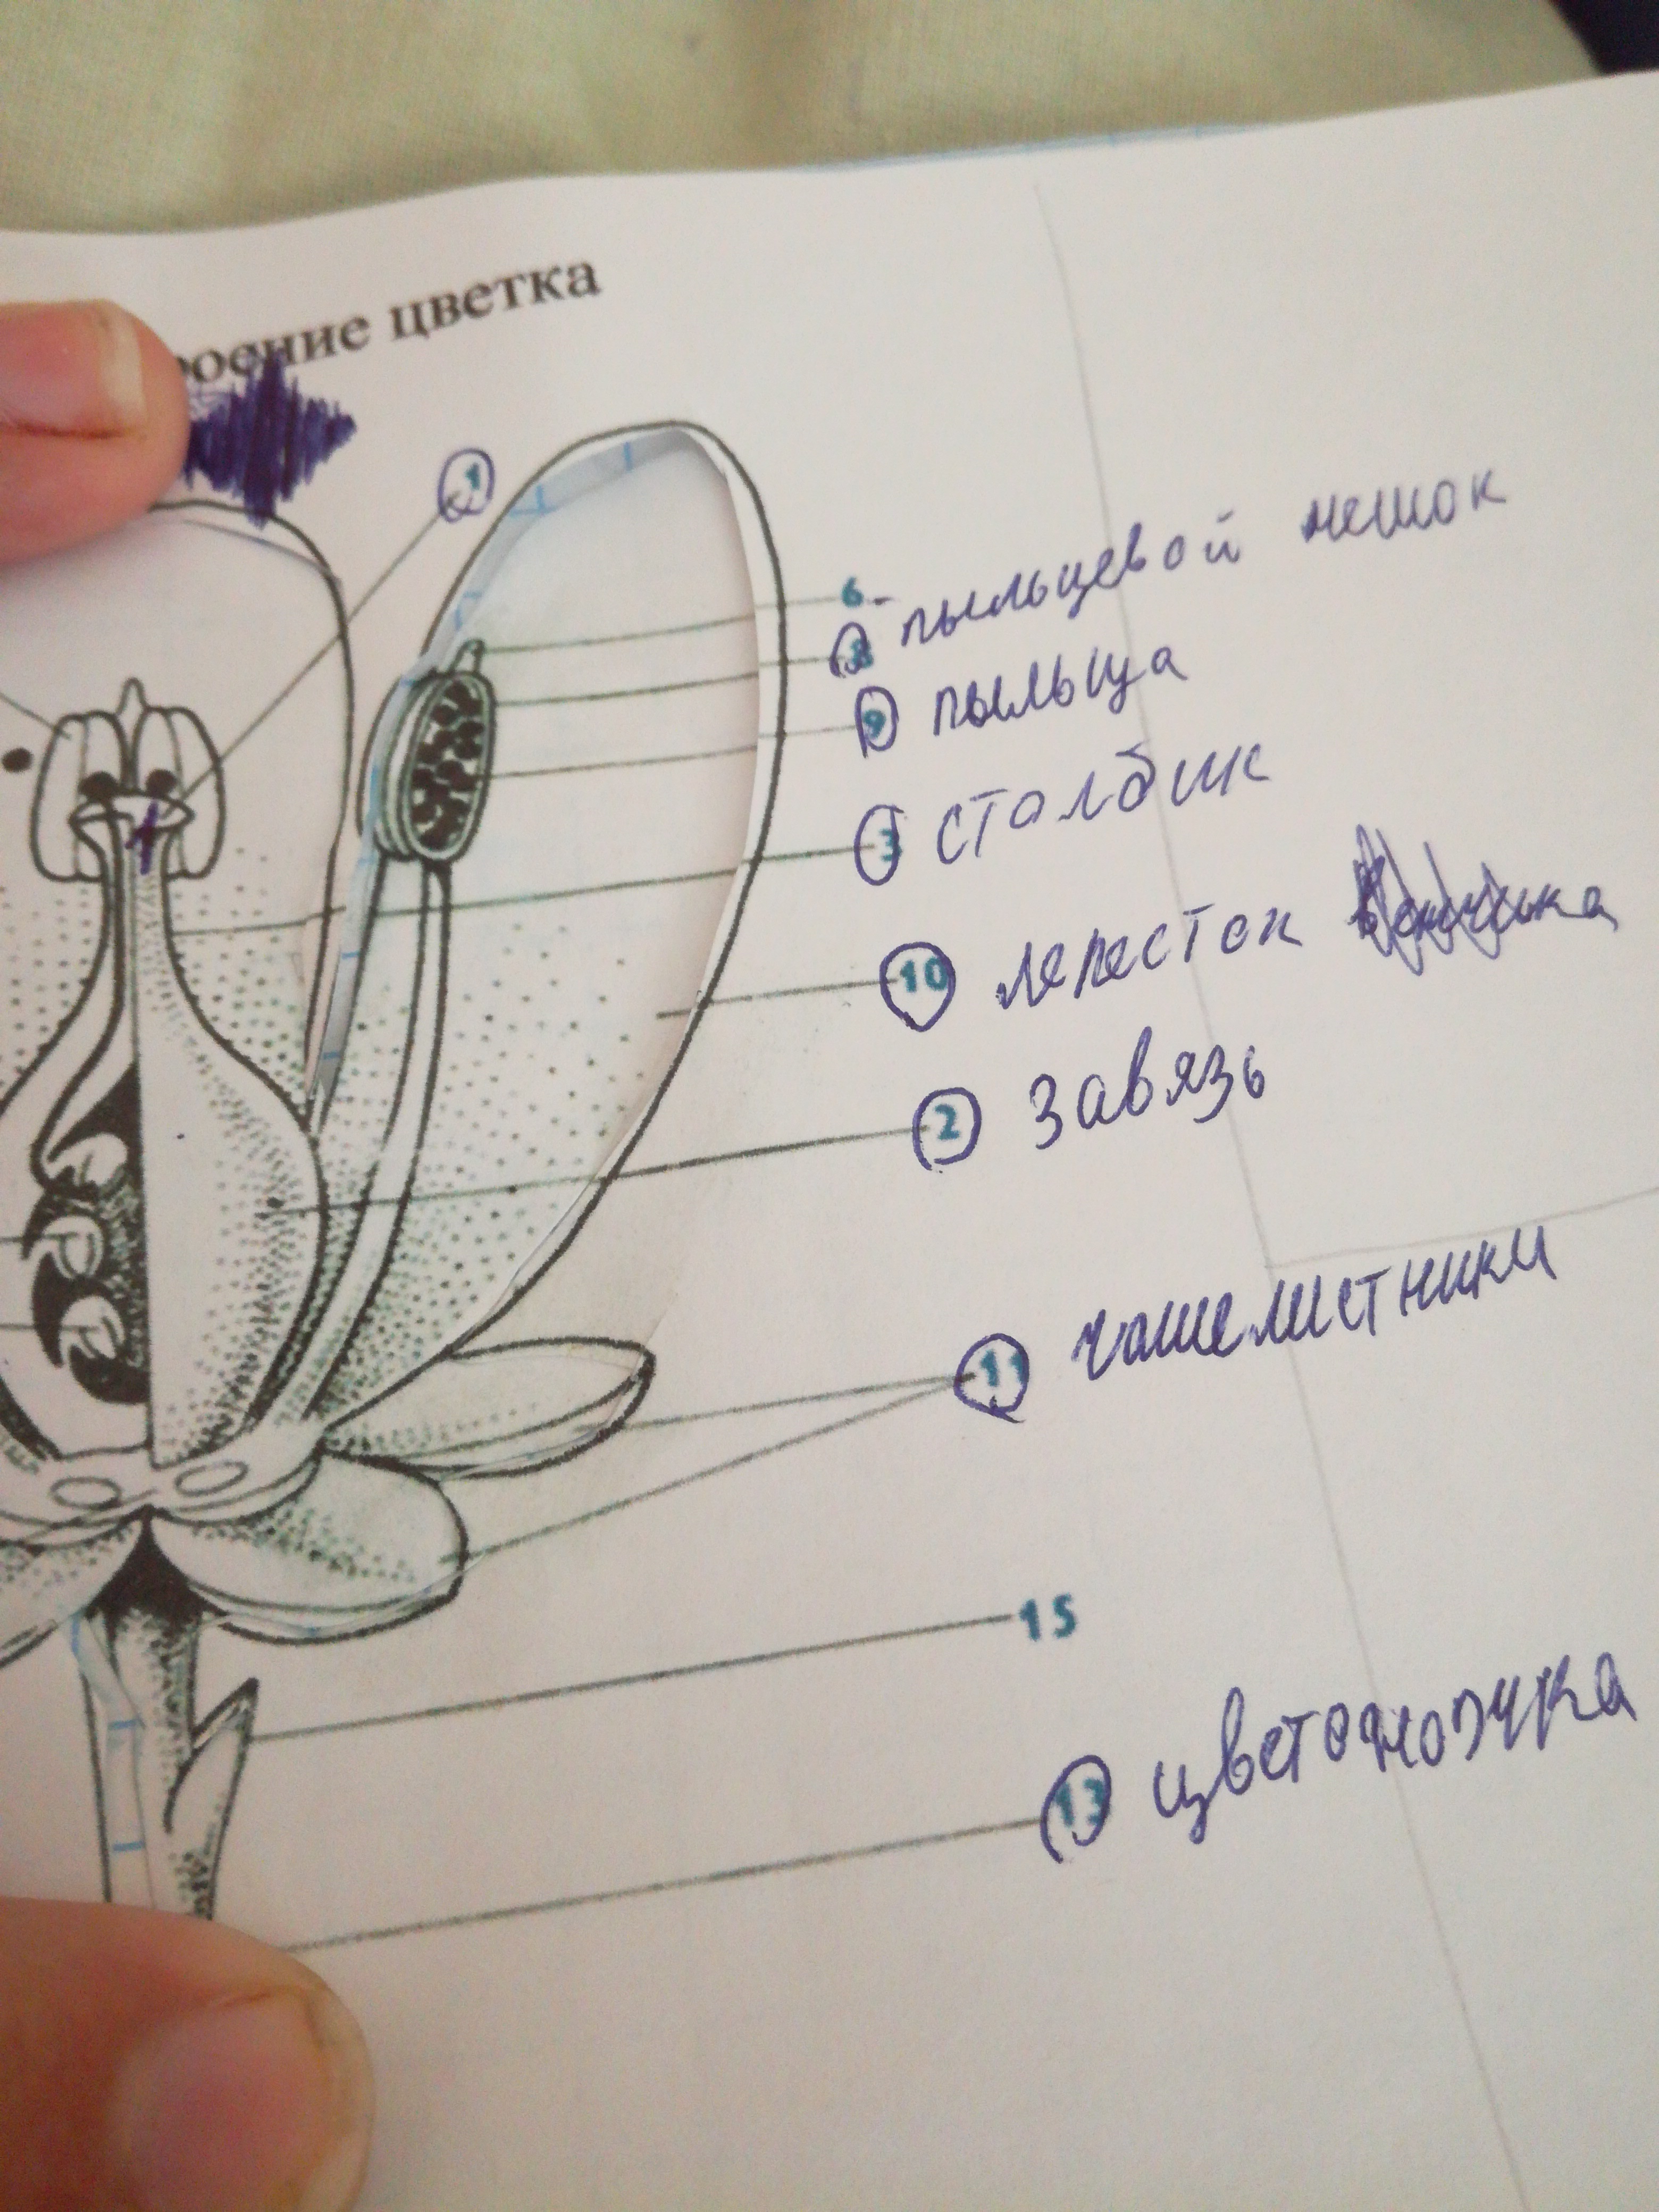 роение цветка
1
6 - пыльцевой мешок
8
9 пыльца
3 столбик
10 лепесток
2 завязь
11 чашелистники
15
13 цветоножка